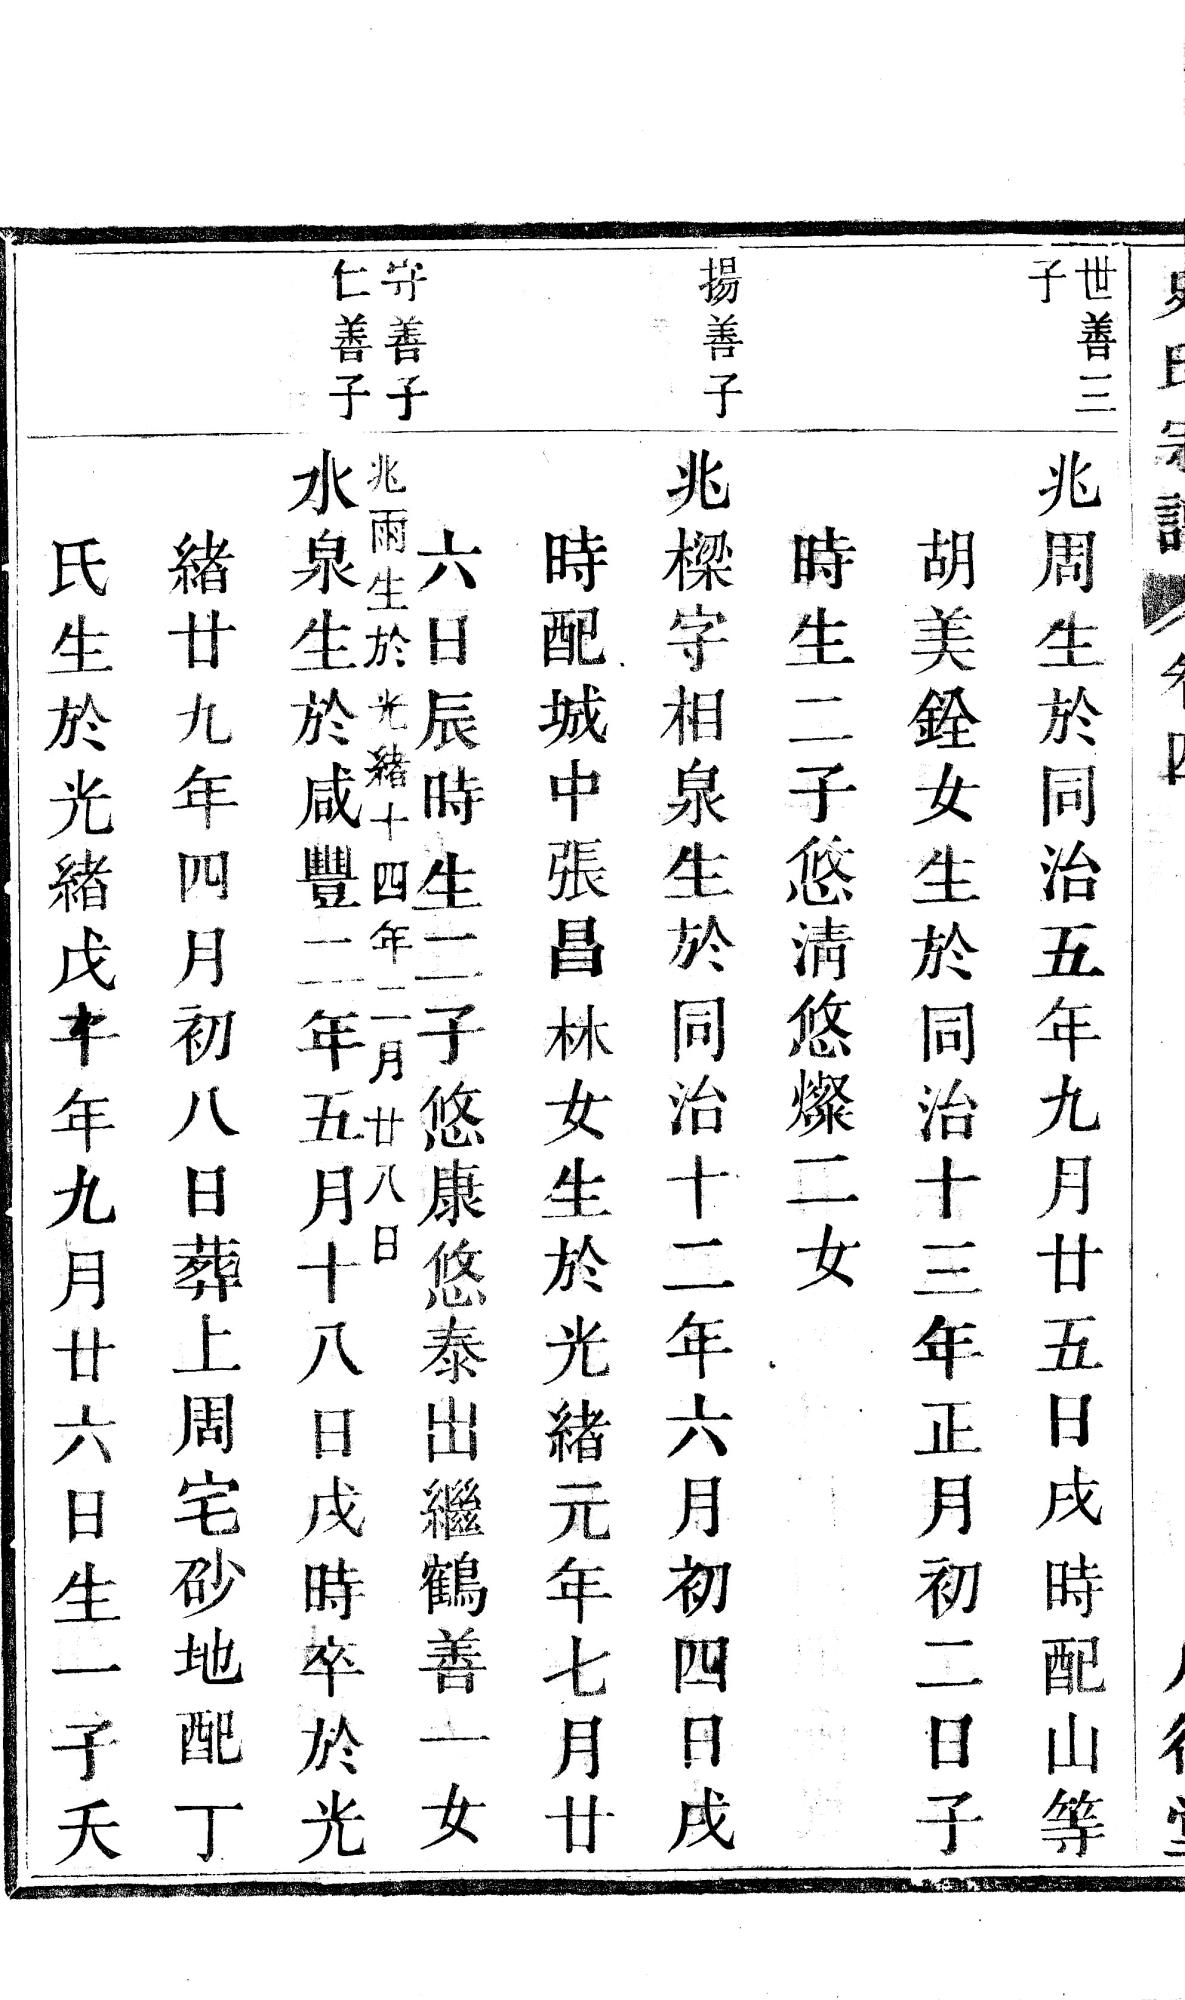 氏宗譜 卷四
世善三
子
兆周生於同治五年九月廿五日戌時配山等
胡美銓女生於同治十三年正月初二日子
時生二子悠淸悠燦二女
揚善子
兆樑字相泉生於同治十二年六月初四日戌
時配城中張昌林女生於光緒元年七月廿
六日辰時生二子悠康悠泰出繼鶴善一女
守善子
兆雨生於光緒十四年二月廿八日
仁善子
水泉生於咸豐二年五月十八日戌時卒於光
緒廿九年四月初八日葬上周宅砂地配丁
氏生於光緒戊年九月廿六日生一子夭